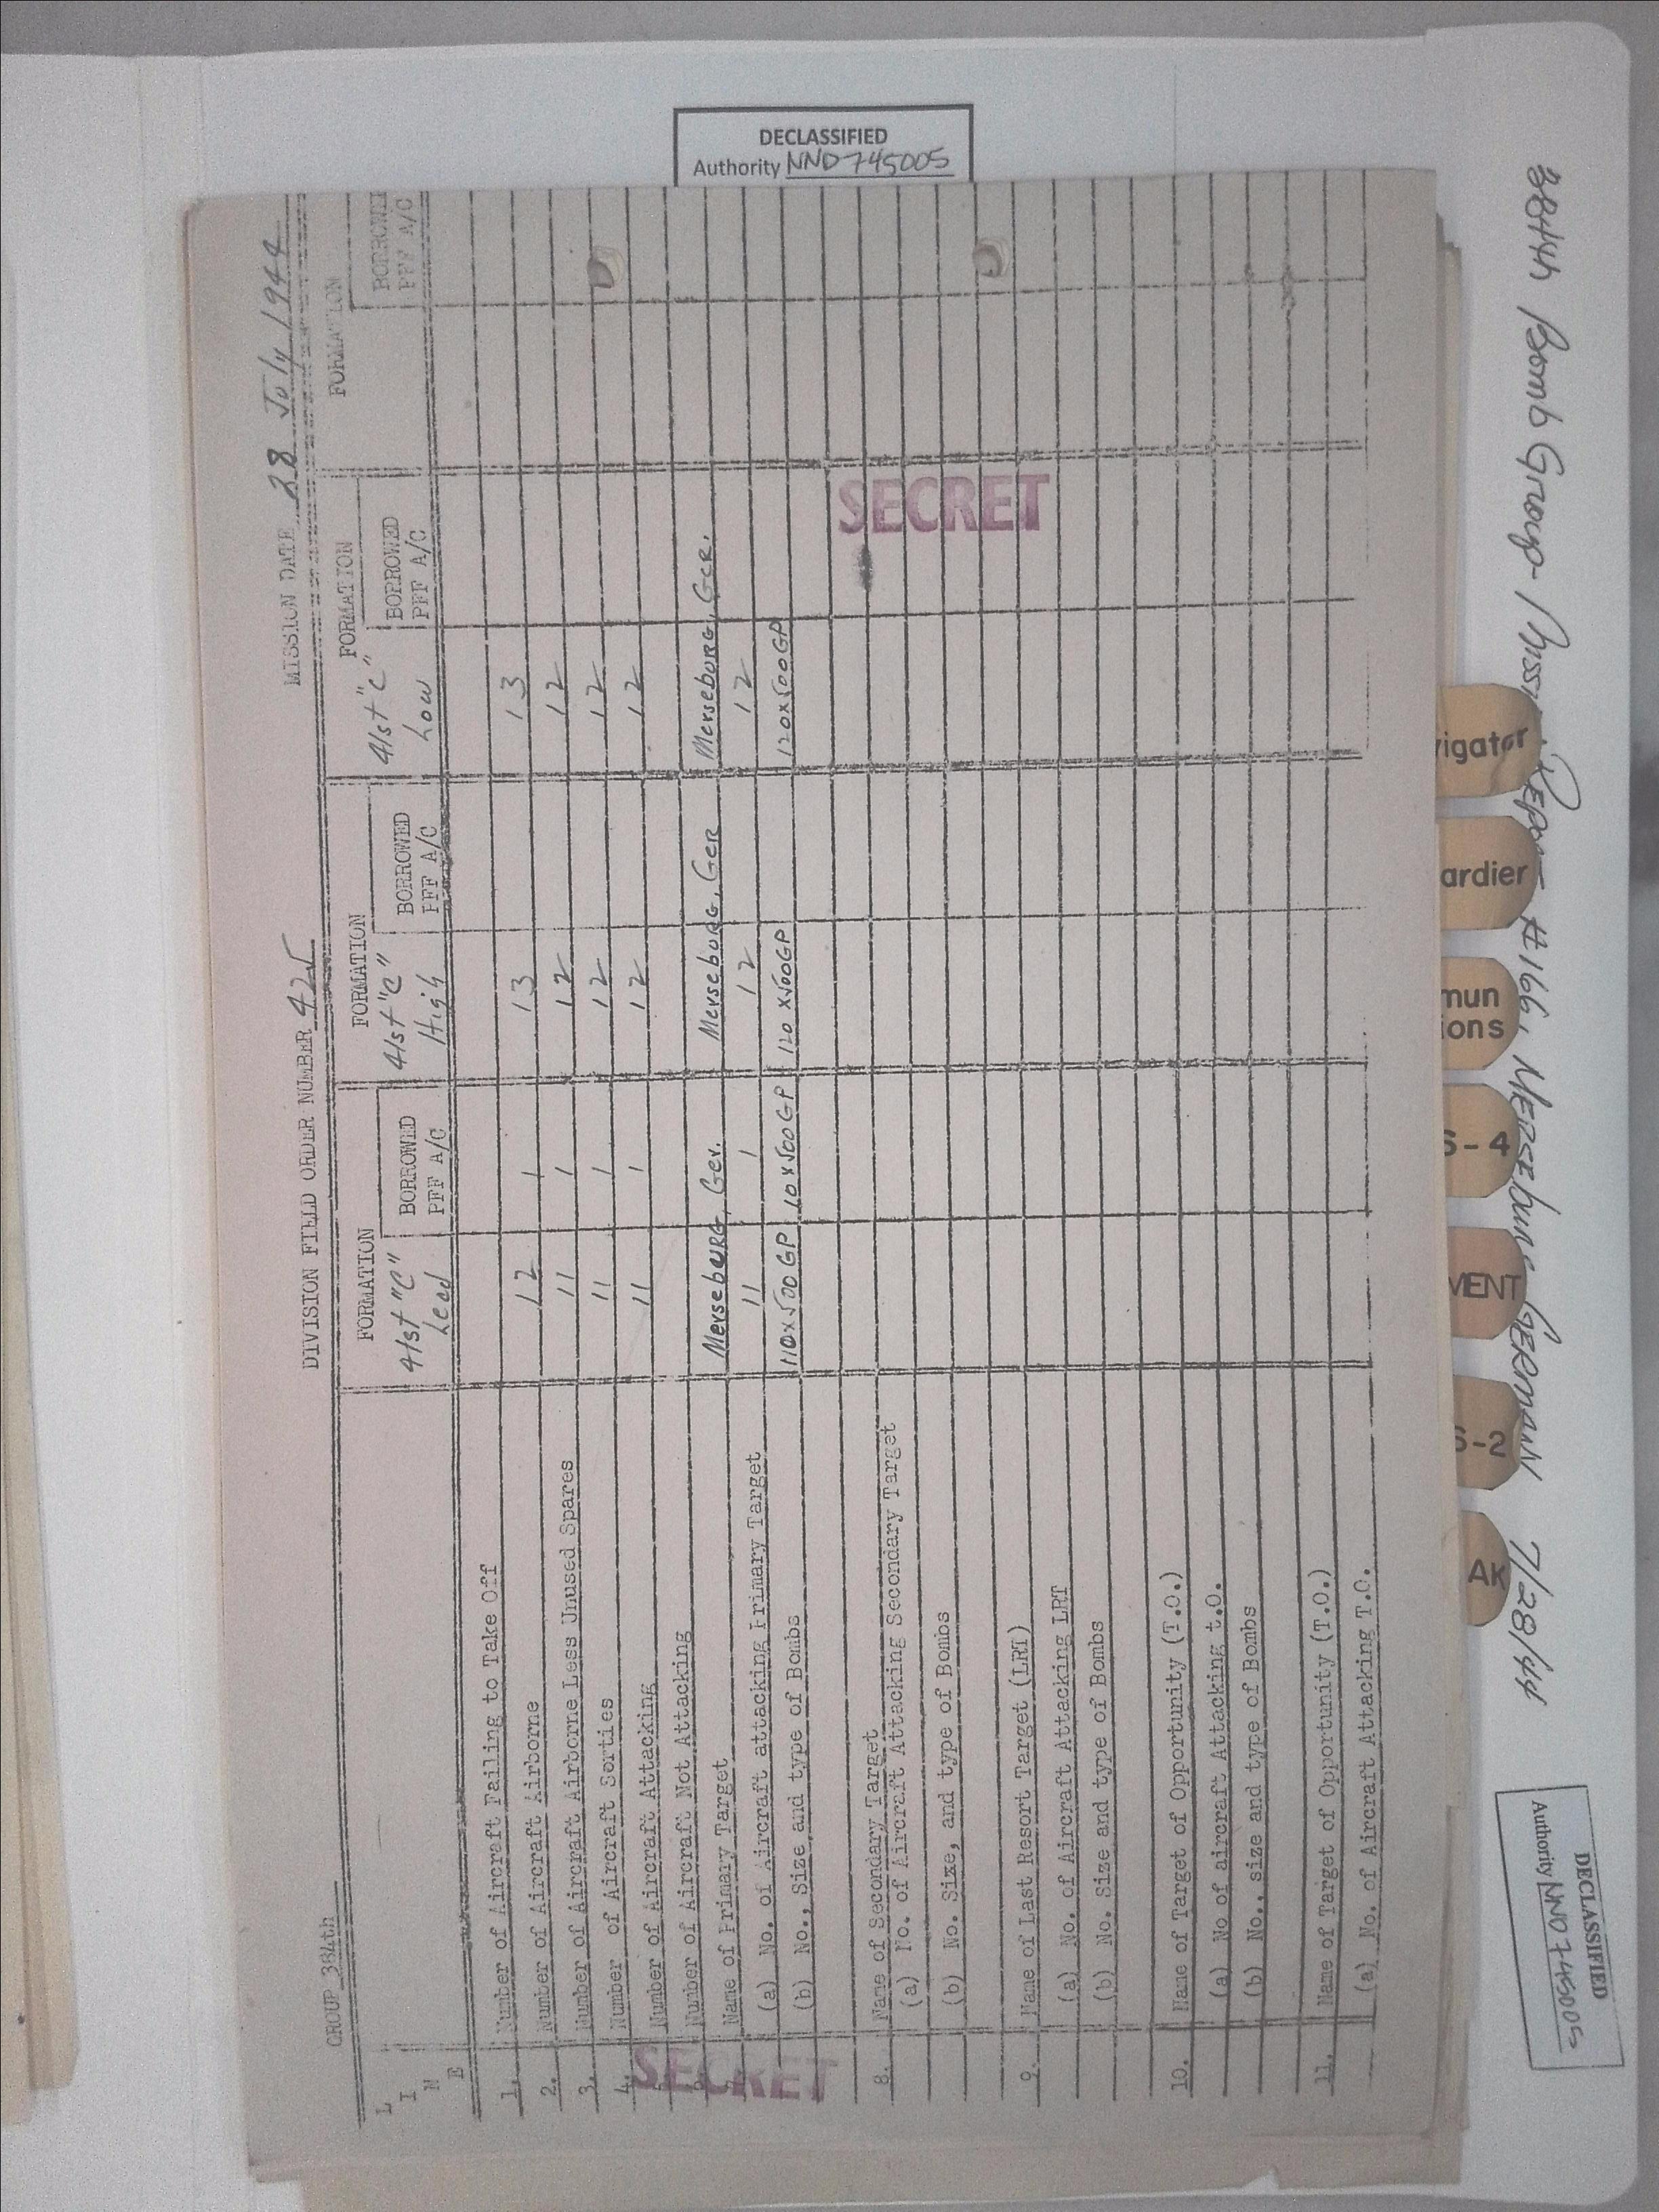 DECLASSIFIED
Authority NND 745005
GROUP 384th DIVISION FIELD ORDER NUMBER 425 MISSION DATE 28 July 1944
LINE
FORMATION FORMATION FORMATION FORMATION
41st "C" Lead BORROWED PFF A/C 41st "C" High BORROWED PFF A/C 41st "C" Low BORROWED PFF A/C BORROWED PFF A/C
1. Number of Aircraft Failing to Take Off
2. Number of Aircraft Airborne 12 1 13 13
3. Number of Aircraft Airborne Less Unused Spares 11 1 12 12
4. Number of Aircraft Sorties 11 1 12 12
5. Number of Aircraft Attacking 11 1 12 12
6. Number of Aircraft Not Attacking
7. Name of Primary Target Merseburg, Ger. Merseburg, Ger Merseburg, Ger.
(a) No. of Aircraft attacking Primary Target 11 1 12 12
(b) No., Size and type of Bombs 110x500 GP 10x500GP 120 x500GP 120x500GP
8. Name of Secondary Target
(a) No. of Aircraft Attacking Secondary Target
(b) No. Size, and type of Bombs
9. Name of Last Resort Target (LRT)
(a) No. of Aircraft Attacking LRT
(b) No. Size and type of Bombs
10. Name of Target of Opportunity (T.O.)
(a) No of aircraft Attacking t.O.
(b) No., size and type of Bombs
11. Name of Target of Opportunity (T.O.)
(a) No. of Aircraft Attacking T.O.
SECRET
SECRET
384th Bomb Group - Mission Report #166, Merseburg GERMANY 7/28/44
vigator
ardier
mun
ions
S-4
MENT
S-2
AK
DECLASSIFIED
Authority NND 745005